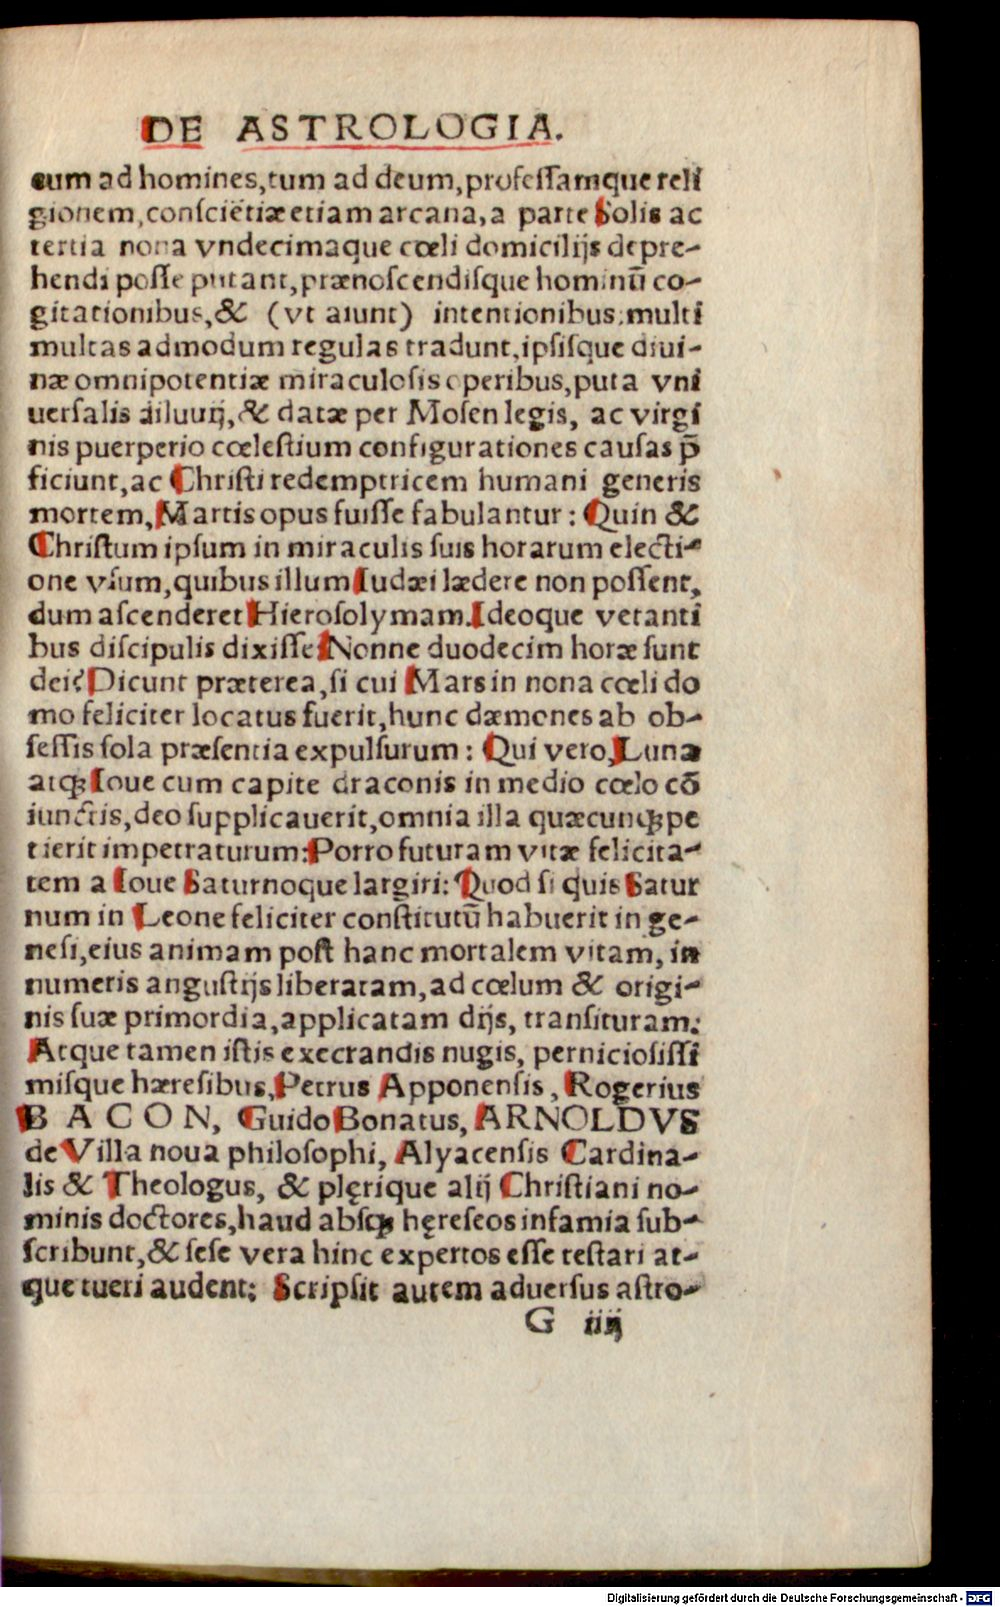 DE ASTROLOGIA.
cum ad homines,tum ad deum,professamque reli
gionem,consciẽtiæ etiam arcana,a parte Solis ac
tertia nona vndecimaque cœli domicilijs depre-
hendi posse putant,prænoscendisque hominũ co-
gitationibus,& (vt aiunt) intentionibus:multi
multas admodum regulas tradunt,ipsisque diui-
næ omnipotentiæ miraculosis operibus,puta vni
uersalis diluuij,& datæ per Mosen legis, ac virgi
nis puerperio cœlestium configurationes causas p̃
ficiunt,ac Christi redemptricem humani generis
mortem,Martis opus fuisse fabulantur: Quin &
Christum ipsum in miraculis suis horarum electi-
one vsum,quibus illum Iudæi lædere non possent,
dum ascenderet Hierosolymam.Ideoque vetanti
bus discipulis dixisse Nonne duodecim horæ sunt
dei?Dicunt præterea,si cui Mars in nona cœli do
mo feliciter locatus fuerit,hunc dæmones ab ob-
sessis sola præsentia expulsurum: Qui vero,Luna
atqꝫ Ioue cum capite draconis in medio cœlo cõ
iunctis,deo supplicauerit,omnia illa quæcunqꝫ pe
tierit impetraturum:Porro futuram vitæ felicita-
tem a Ioue Saturnoque largiri: Quod si quis Satur
num in Leone feliciter constitutũ habuerit in ge-
nesi,eius animam post hanc mortalem vitam, in
numeris angustijs liberatam,ad cœlum & origi-
nis suæ primordia,applicatam dijs, transituram:
Atque tamen istis execrandis nugis, perniciosissi
misque hæresibus,Petrus Apponensis, Rogerius
BACON, Guido Bonatus, ARNOLDVS
de Villa noua philosophi, Alyacensis Cardina-
lis & Theologus, & plęrique alij Christiani no-
minis doctores,haud absqꝫ hęreseos infamia sub-
scribunt,& sese vera hinc expertos esse testari at-
que tueri audent; Scripsit autem aduersus astro-
G iiij
Digitalisierung gefördert durch die Deutsche Forschungsgemeinschaft - DFG